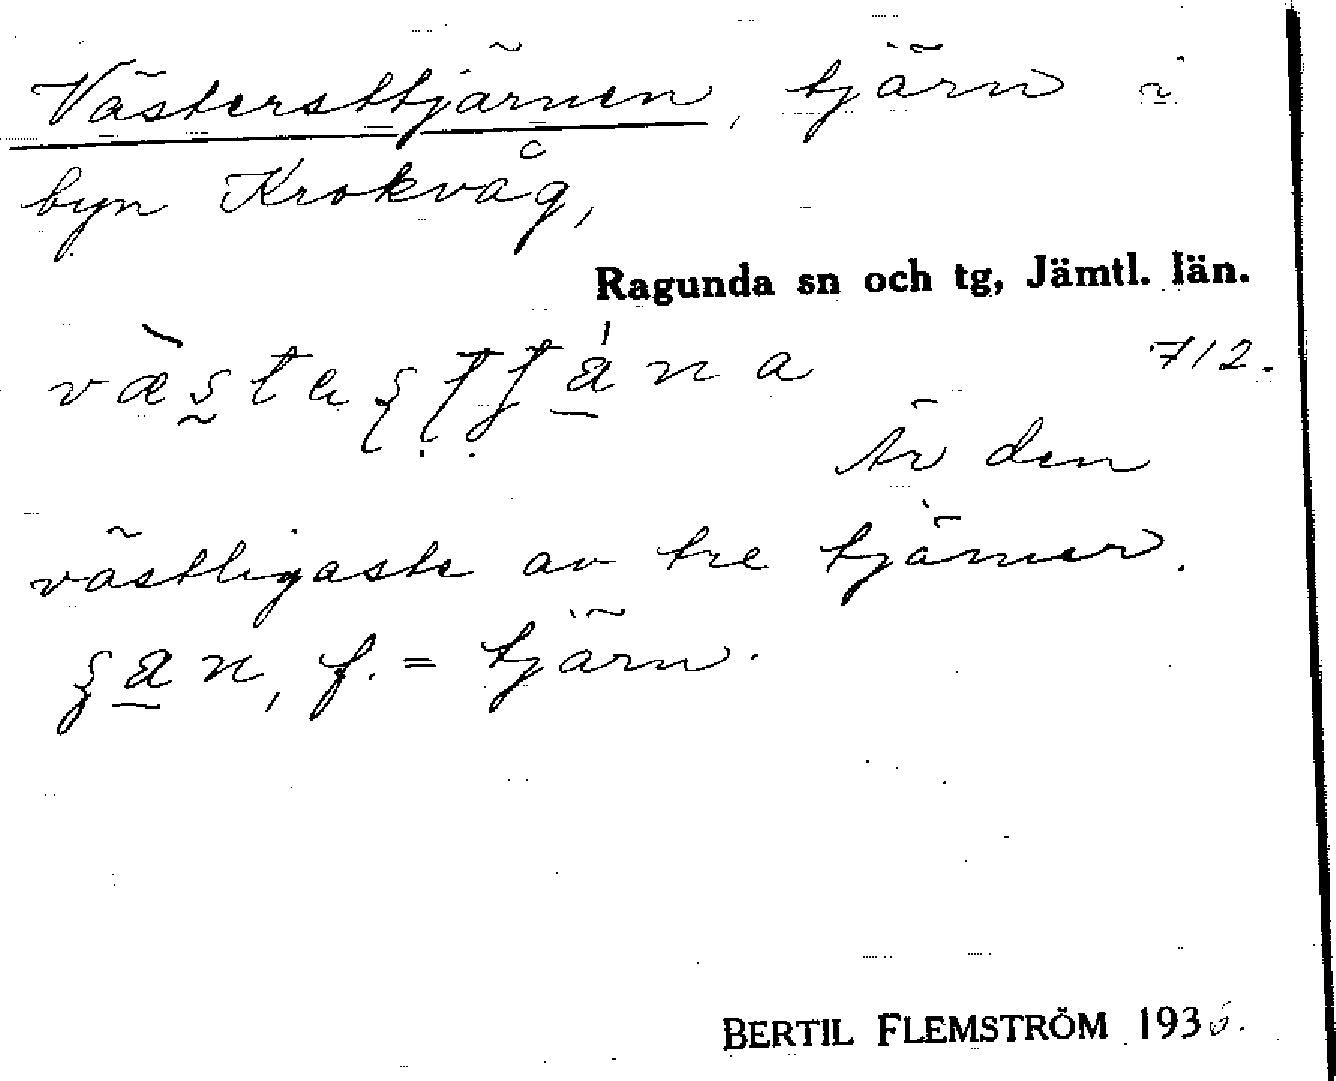 Västersttjärnen, tjärn i
byn Krokvåg,
Ragunda sn och tg, Jämtl. län.
712.
Är den
västligaste av tre tjärner.
f. = tjärn.
BERTIL FLEMSTRÖM 1936.